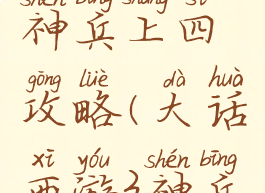 shén bīng shàng sì
神兵上四
gōng lüè dà huà
攻略(大话
xī yóu shén bīng
西游3神兵